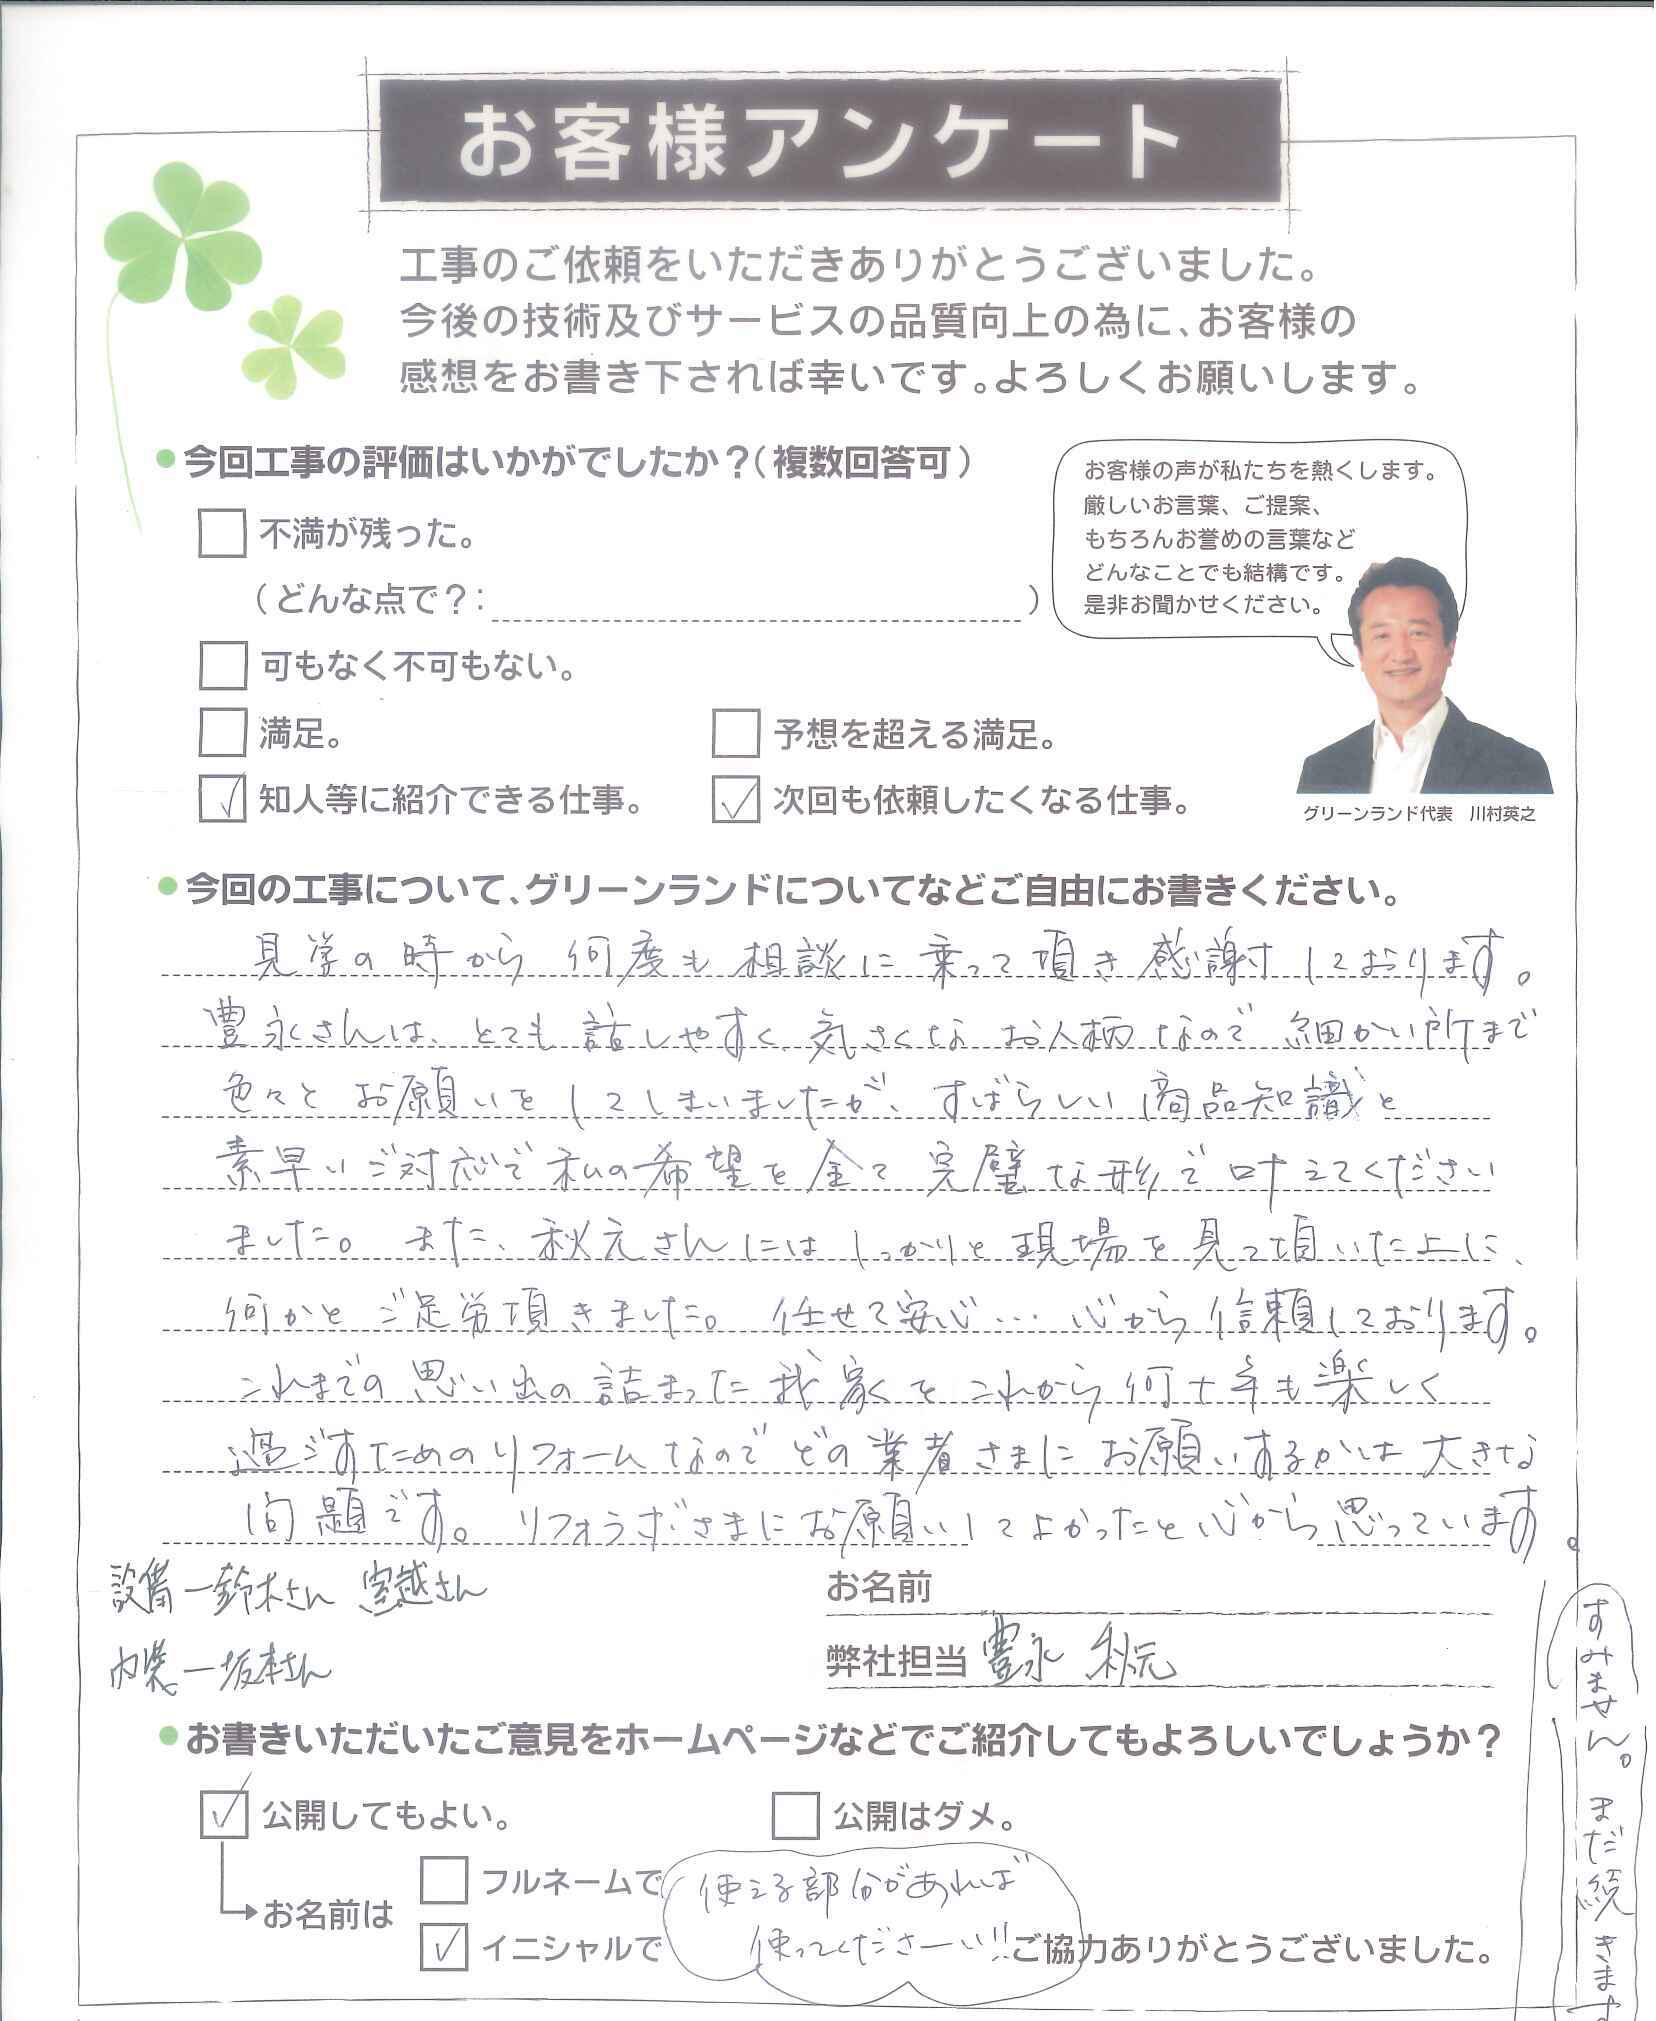 お客様アンケート
工事のご依頼をいただきありがとうございました。
今後の技術及びサービスの品質向上の為に、お客様の
感想をお書き下されば幸いです。よろしくお願いします。
今回工事の評価はいかがでしたか？（複数回答可）
不満が残った。
（どんな点で？： ）
可もなく不可もない。
満足。 予想を超える満足。
知人等に紹介できる仕事。 次回も依頼したくなる仕事。
お客様の声が私たちを熱くします。
厳しいお言葉、ご提案、
もちろんお誉めの言葉など
どんなことでも結構です。
是非お聞かせください。
グリーンランド代表 川村英之
今回の工事について、グリーンランドについてなどご自由にお書きください。
見学の時から何度も相談に乗って頂き感謝しております。
豊永さんは、とても話しやすく気さくなお人柄なので細かい所まで
色々とお願いをしてしまいましたが、すばらしい商品知識と
素早いご対応で私の希望を全て完璧な形で叶えてください
ました。また、秋元さんにはしっかりと現場を見て頂いた上に、
何かとご足労頂きました。任せて安心…心から信頼しております。
これまでの思い出の詰まった我家をこれから何十年も楽しく
過ごすためのリフォームなのでどの業者さまにお願いするかは大きな
問題です。リフォラボさまにお願いしてよかったと心から思っています。
設備ー鈴木さん 室越さん
内装ー坂本さん
お名前
弊社担当 豊永 秋元
すみません。まだ続きます
お書きいただいたご意見をホームページなどでご紹介してもよろしいでしょうか？
公開してもよい。 公開はダメ。
お名前は
フルネームで
イニシャルで
使える部分があれば
使ってくださーい!!
ご協力ありがとうございました。